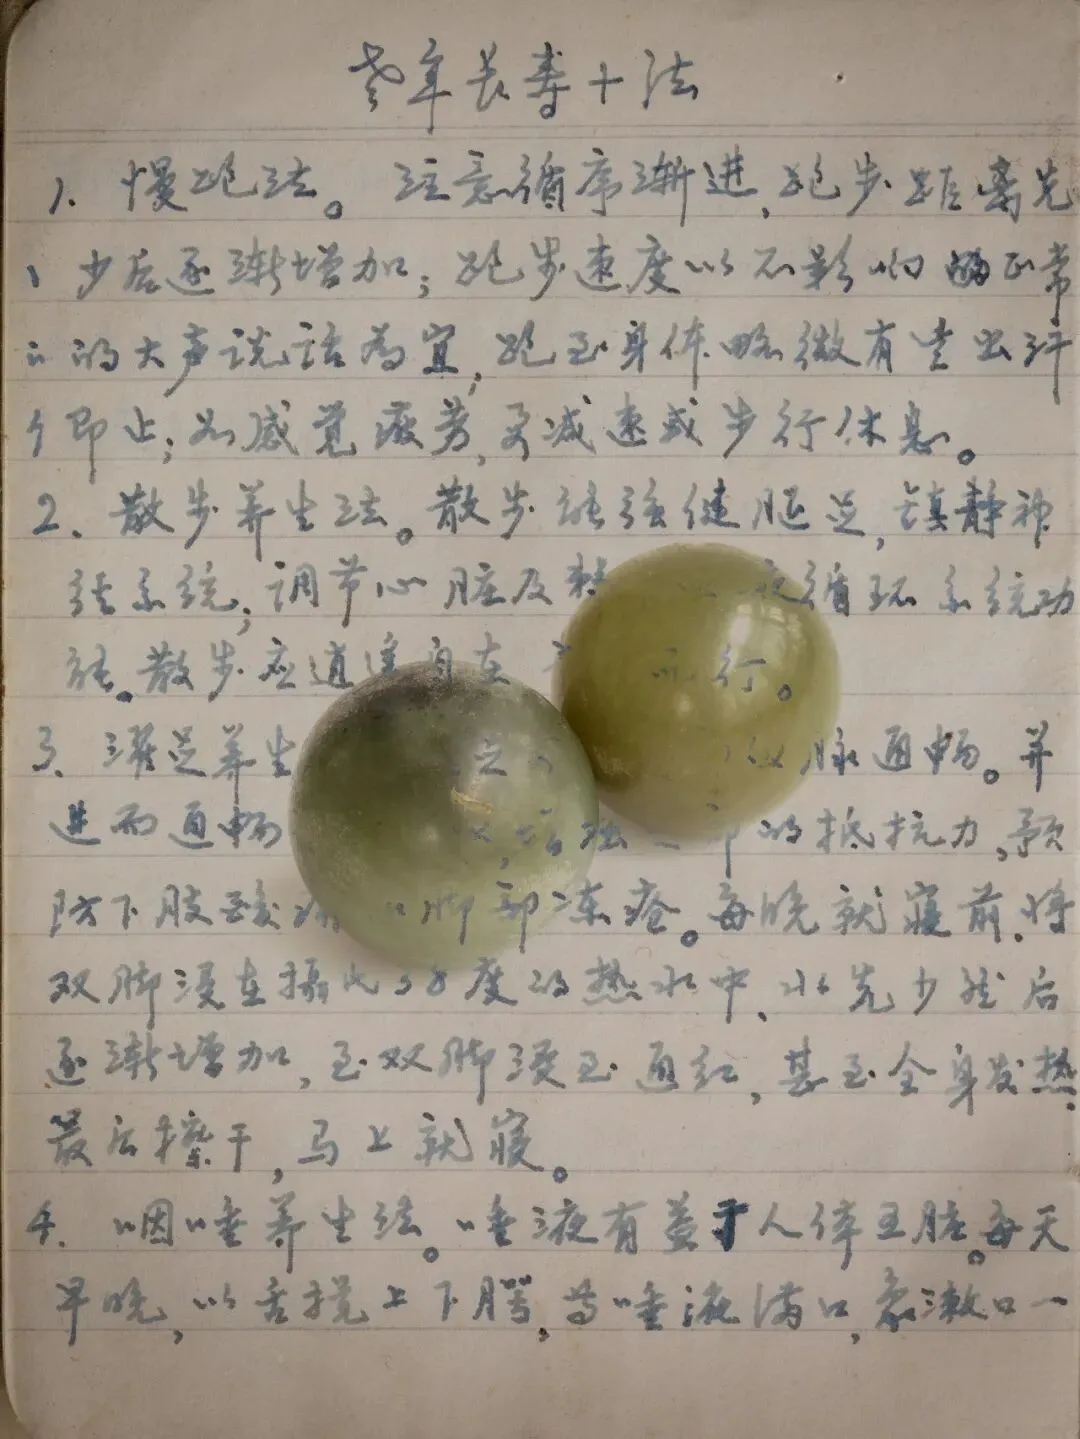 老年长寿十法
1. 慢跑法。注意循序渐进,跑步距离先
少后逐渐增加;跑步速度以不影响正常
的大声说话为宜,跑至身体略微有些出汗
即止;如感觉疲劳,可减速或步行休息。
2. 散步养生法。散步能强健腿足,镇静神
经系统,调节心脏及 循环系统功
能。散步应逍遥自在 而行。
3. 濯足养生 足 脉通畅。并
进而通畅 ,增强 部的抵抗力,预
防下肢酸 脚部冻疮。每晚就寝前,将
双脚浸在摄氏38度的热水中,水先少然后
逐渐增加,至双脚浸至通红,甚至全身发热.
最后擦干,马上就寝。
4. 咽唾养生法。唾液有益于人体五脏。每天
早晚,以舌搅上下腭,等唾液满口,象漱口一